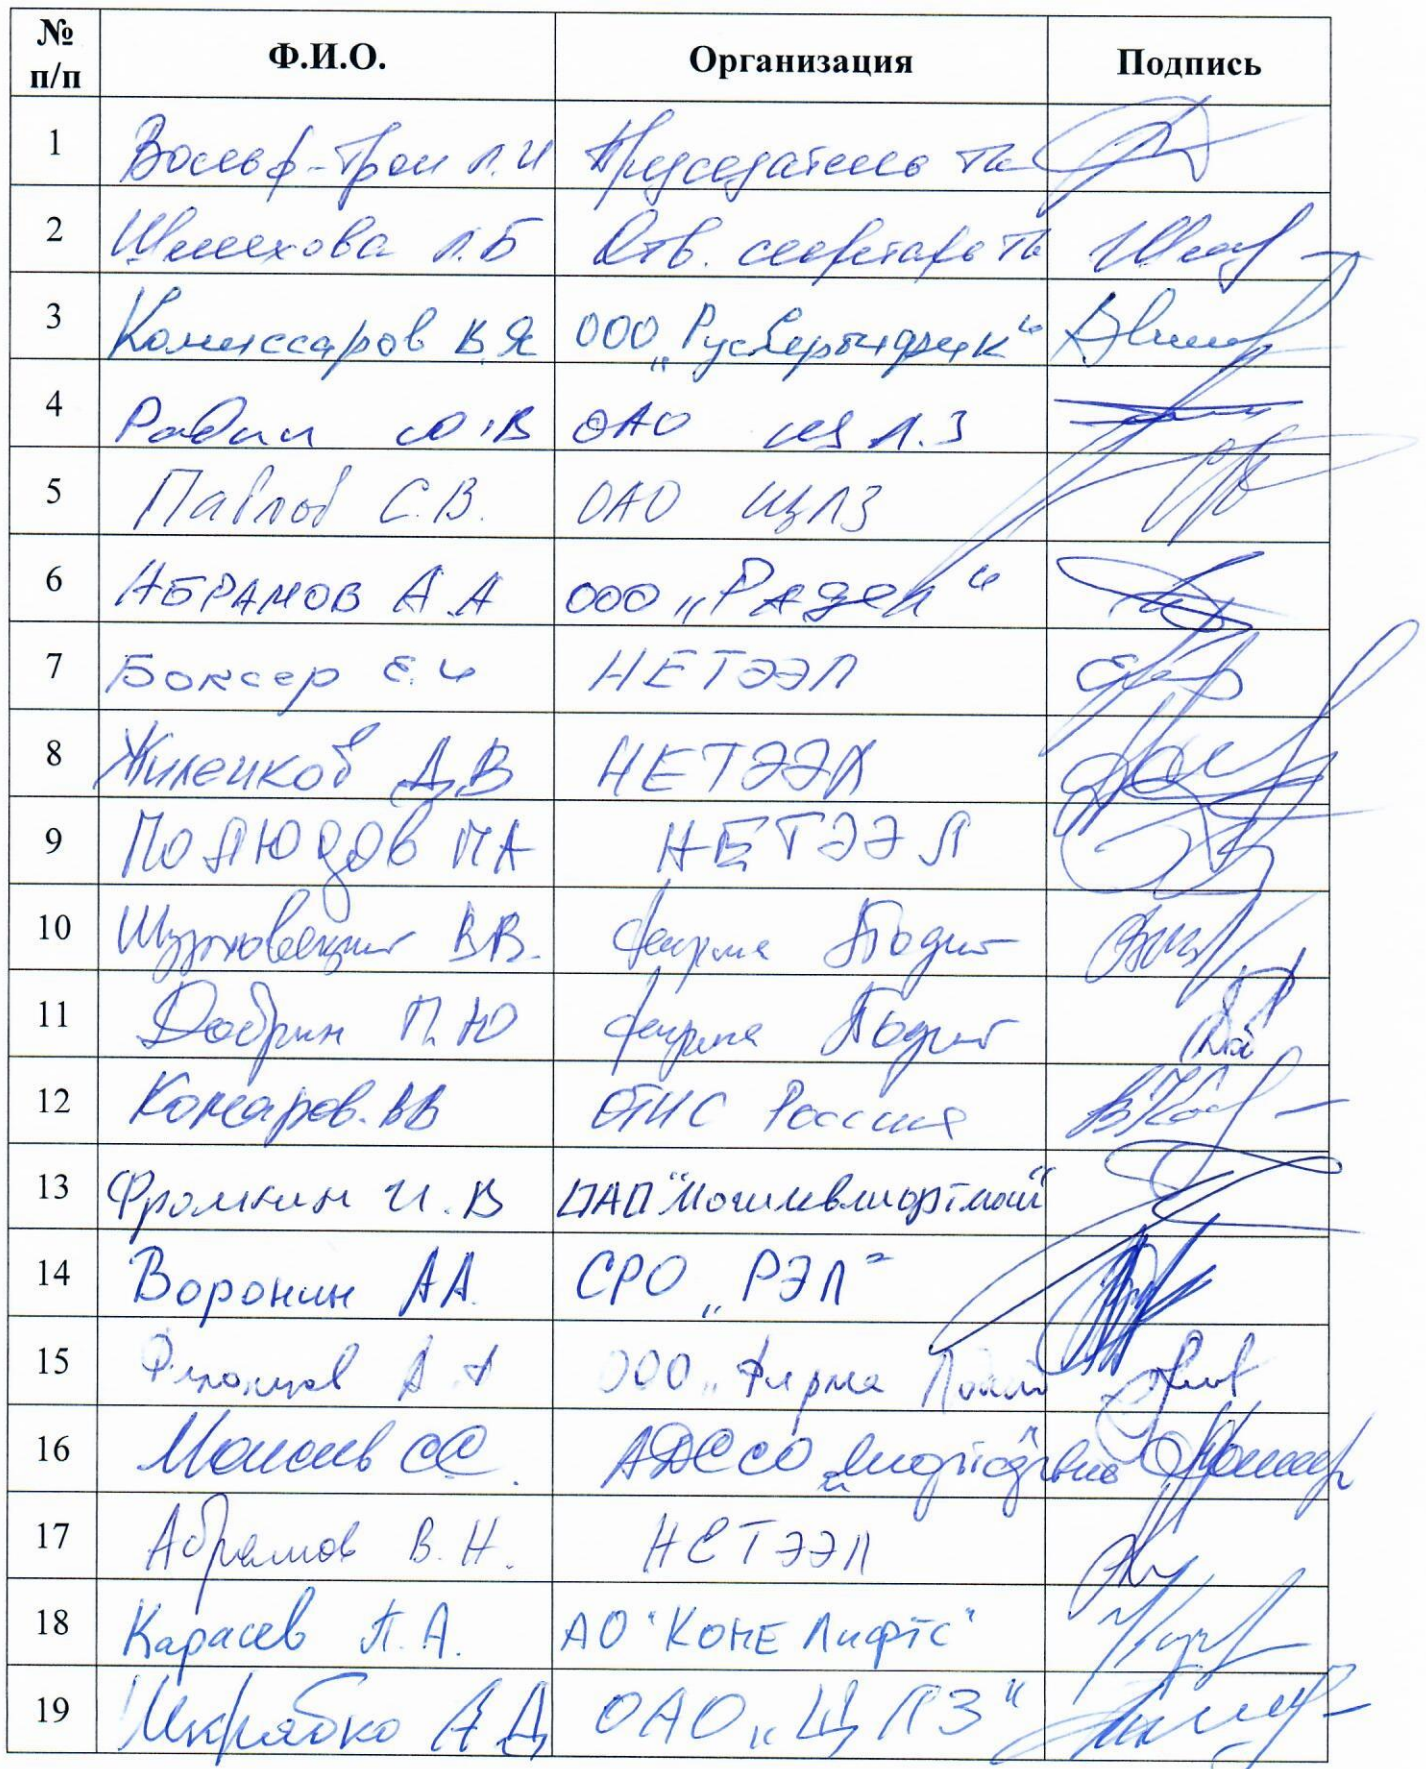 № п/п Ф.И.О. Организация Подпись
1 Вольф-Трон Л.И Председатель ТК
2 Шмелехова Л.Б Отв. секретарь ТК
3 Комиссаров В.Я ООО „РусЛерантдрик“
4 Рабин Ю.В ОАО ЩЛЗ
5 Павлов С.В. ОАО ЩЛЗ
6 АБРАМОВ А.А ООО „Радел“
7 Боксер Е.И НЕТЭЭЛ
8 Жиленков Д.В НЕТЭЭЛ
9 ПОЛЮДОВ ПА НЕТЭЭЛ
10 ВВ. фирма Подит
11 Добрин П.Ю фирма Подит
12 Комаров. ВВ ОТИС Россия
13 Фромкин И.В ОАО "Могилевлифтмаш"
14 Воронин АА. СРО „РЭЛ"
15 А.А ООО „Фирма
16 Моисеев СС.
17 Абрамов В.Н. НЕТЭЭЛ
18 Карасев П.А. АО "КОНЕ Лифтс"
19 Шкрябко А Д ОАО „ЩЛЗ"